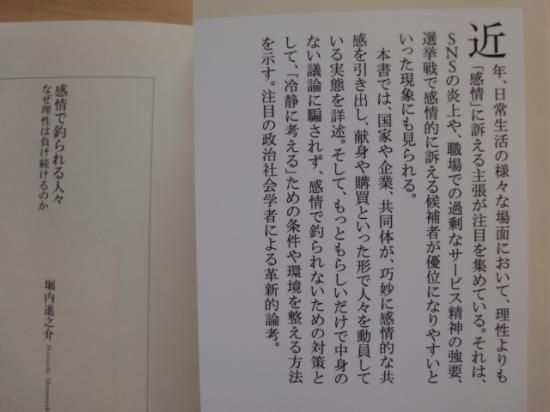 近年、日常生活の様々な場面において、理性よりも
「感情」に訴える主張が注目を集めている。それは、
SNSの炎上や、職場での過剰なサービス精神の強要、
選挙戦で感情的に訴える候補者が優位になりやすいと
いった現象にも見られる。
　本書では、国家や企業、共同体が、巧妙に感情的な共
感を引き出し、献身や購買といった形で人々を動員して
いる実態を詳述。そして、もっともらしいだけで中身の
ない議論に騙されず、感情で釣られないための対策と
して、「冷静に考える」ための条件や環境を整える方法
を示す。注目の政治社会学者による革新的論考。
感情で釣られる人々
なぜ理性は負け続けるのか
堀内進之介